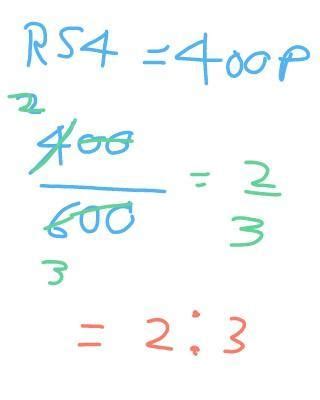 RS4 = 400P
2
400
600
3
= 2
3
= 2 : 3